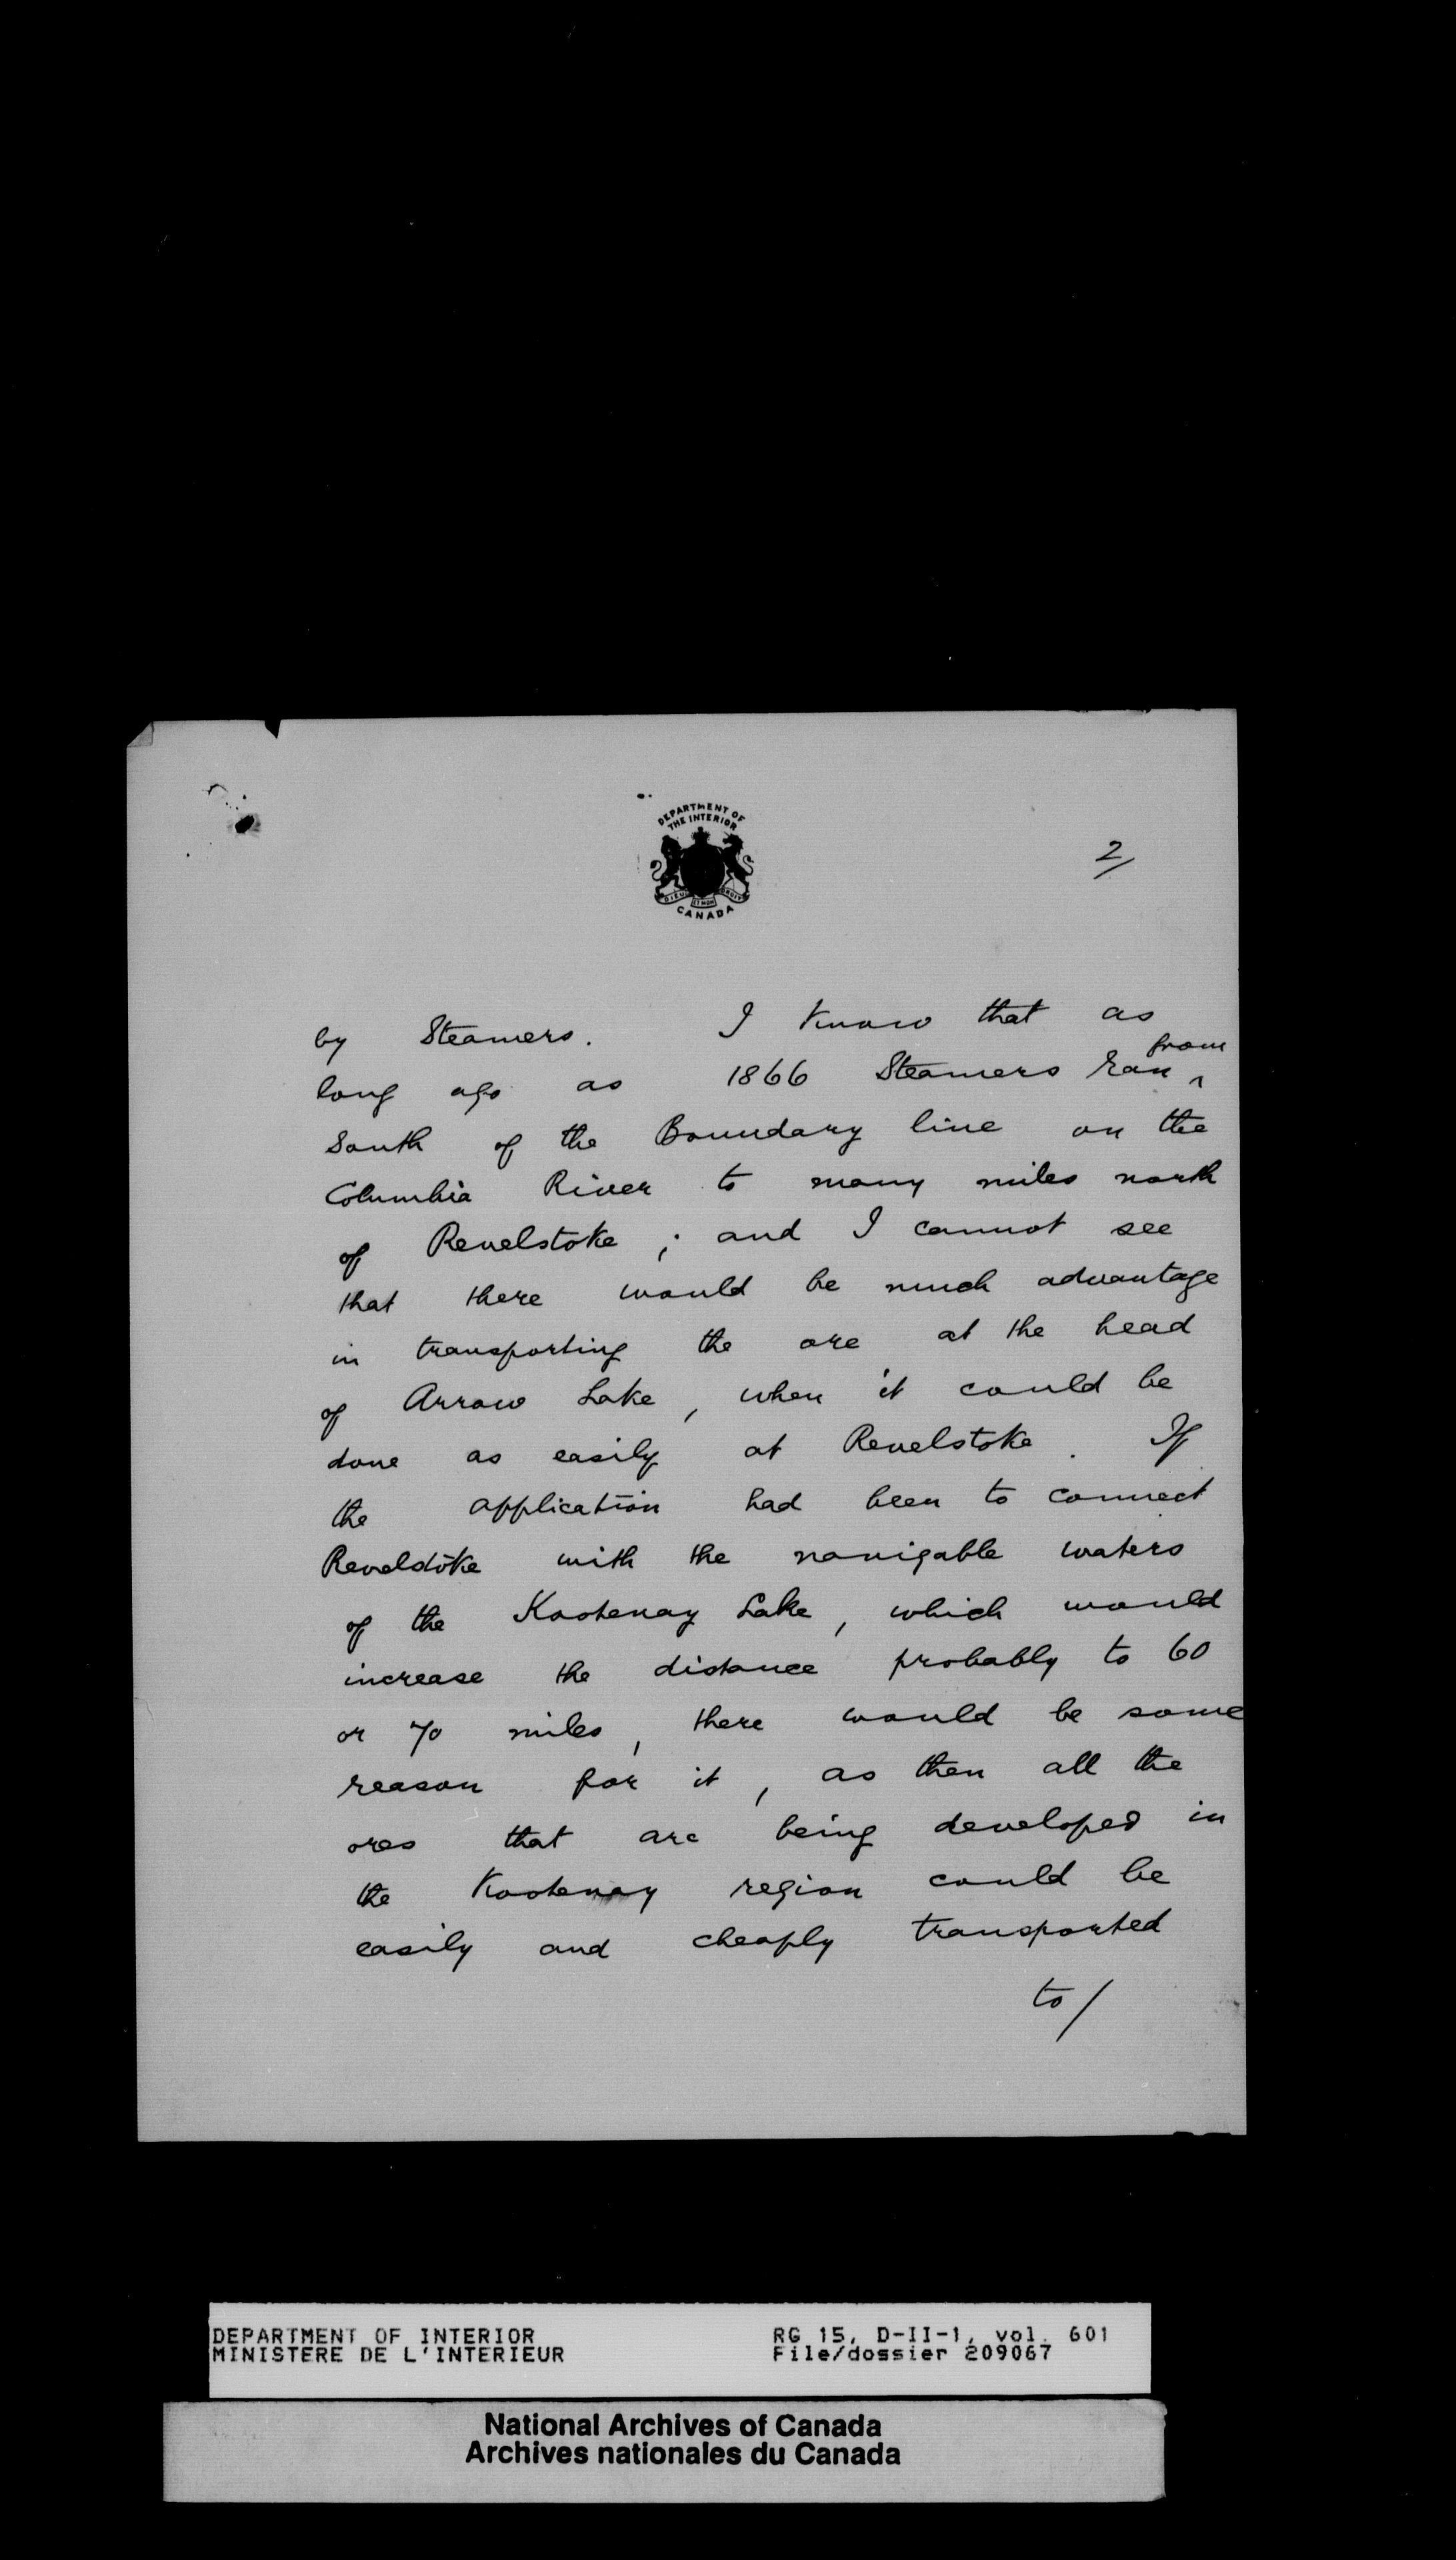 DEPARTMENT OF
THE INTERIOR
DIEU ET MON DROIT
CANADA
2/
by Steamers. I know that as
long ago as 1866 Steamers ran ^ from
South of the Boundary line on the
Columbia River to many miles north
of Revelstoke ; and I cannot see
that there would be much advantage
in transporting the ore at the head
of Arrow Lake, when it could be
done as easily at Revelstoke. If
the application had been to connect
Revelstoke with the navigable waters
of the Kootenay Lake, which would
increase the distance probably to 60
or 70 miles, there would be some
reason for it, as then all the
ores that are being developed in
the Kootenay region could be
easily and cheaply transported
to/
DEPARTMENT OF INTERIOR
MINISTERE DE L'INTERIEUR
RG 15, D-II-1, vol. 601
File/dossier 209067
National Archives of Canada
Archives nationales du Canada